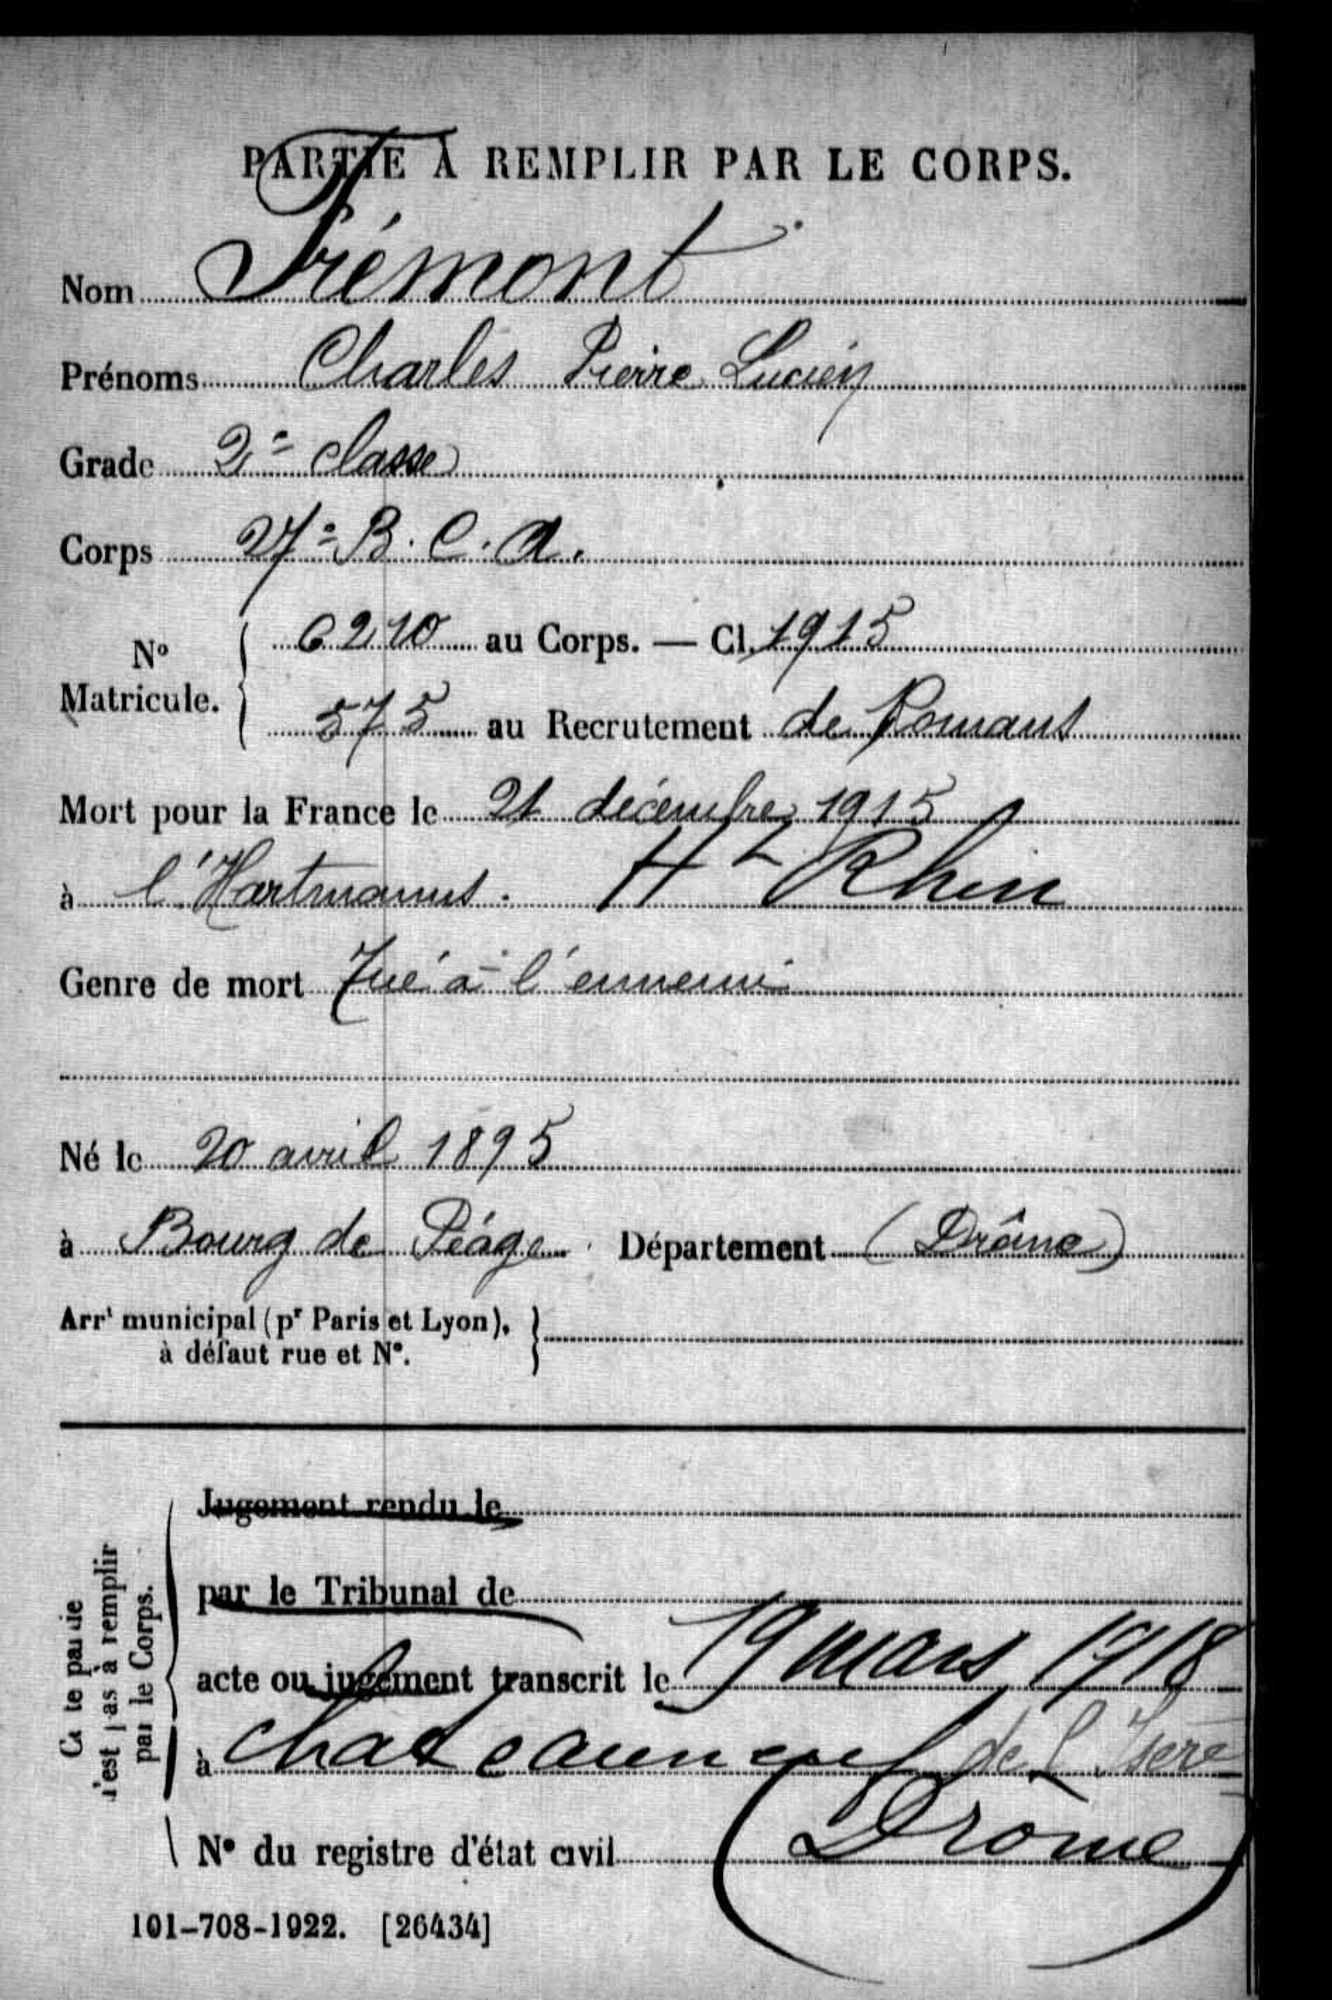 PARTIE À REMPLIR PAR LE CORPS.
Nom Frémont
Prénoms Charles Pierre Lucien
Grade 2e classe
Corps 27e B. C. A.
No Matricule. 6210 au Corps. — Cl. 1915
575 au Recrutement de Romans
Mort pour la France le 21 décembre 1915
à l'Hartmanns. Ht Rhin
Genre de mort Tué à l'ennemi
Né le 20 avril 1895
à Bourg de Péage Département (Drôme)
Arrt municipal (pr Paris et Lyon),
à défaut rue et No.
Cette partie
n'est pas à remplir
par le Corps.
Jugement rendu le
par le Tribunal de
acte ou jugement transcrit le 19 mars 1918
à Chateauneuf de l'Isère
No du registre d'état civil (Drôme)
101-708-1922. [26434]